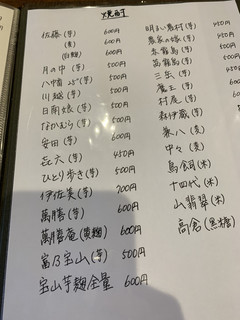 焼酎
佐藤(芋) 600円
(麦) 600円
(白麹) 600円
月の中(芋) 500円
八幡ろかせず(芋) 500円
川越(芋) 500円
日南娘(芋) 500円
なかむら(芋) 500円
安田(芋) 600円
㐂六(芋) 450円
ひとり歩き(芋) 500円
伊佐美(芋) 700円
萬膳(芋) 600円
萬膳庵(黄麹) 600円
富乃宝山(芋) 500円
宝山芋麹全量 600円
明るい農村(芋) 450円
農家の嫁(芋)
赤霧島(芋)
三岳(芋)
魔王(芋)
村尾(芋)
森伊蔵(芋)
兼八(麦)
中々(麦)
鳥飼(米)
十四代(米)
山翡翠(米)
高倉(黒糖)